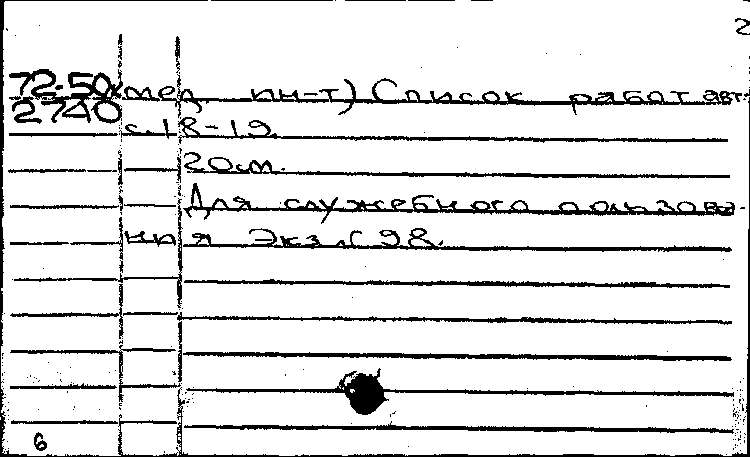 2
72-50к мед. ин-т) Список работ авт:
2740 с. 18-19.
20см.
Для служебного пользова-
ния Экз. № 98.
6